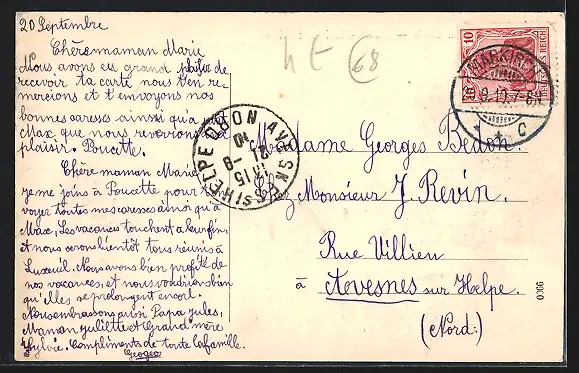 20 Septembre
Chère maman Marie
Nous avons eu grand plaisir de
recevoir ta carte nous t'en re-
mercions et t'envoyons nos
bonnes caresses ainsi qu'à
Max que nous reverrons
plaisir. Poucette.
Chère maman Marie
je me joins à Poucette pour
voyer toutes mes caresses ainsi qu'à
Max, Les vacances touchent à leur fin,
et nous serons bientôt tous réunis à
Luxeuil. Nous avons bien profité de
nos vacances, et nous voudrions bien
qu'elles se prolongent encor.
Nous embrassons aussi Papa Jules,
Maman Juliette et Grand'mère
Sylvie. Compliments de toute la famille.
Georges
ht 68
10
DEUTSCHES REICH
AVESNES-SUR-HELPE NORD
13 15
21 - 9
10
Madame Georges Bedon
Chez Monsieur J. Revin.
Rue Villien
à Avesnes sur Helpe.
(Nord.)